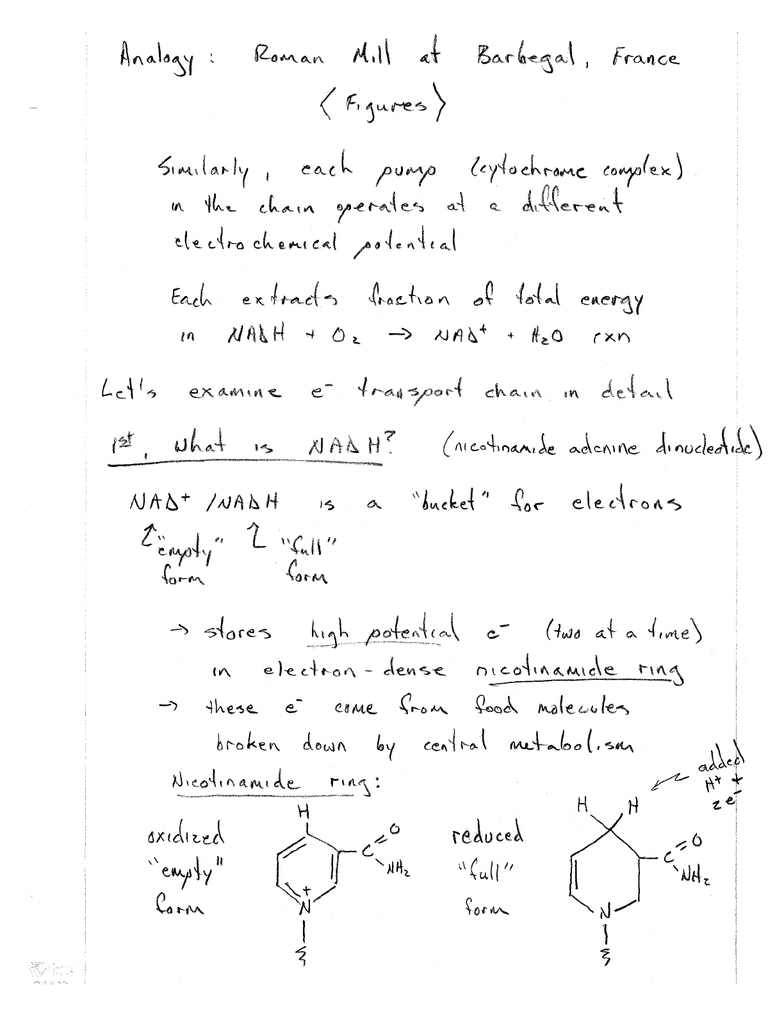 Analogy: Roman Mill at Barbegal, France
<Figures>
Similarly, each pump (cytochrome complex)
in the chain operates at a different
electrochemical potential
Each extracts fraction of total energy
in NADH + O₂ → NAD⁺ + H₂O rxn
Let's examine e⁻ transport chain in detail
1st, what is NADH? (nicotinamide adenine dinucleotide)
NAD⁺ / NADH is a "bucket" for electrons
"empty" "full"
form form
→ stores high potential e⁻ (two at a time)
in electron-dense nicotinamide ring
→ these e⁻ come from food molecules
broken down by central metabolism
Nicotinamide ring:
added
H⁺ +
2e⁻
oxidized
"empty"
form
H
C
O
NH₂
N
+
reduced
"full"
form
H H
C
O
NH₂
N